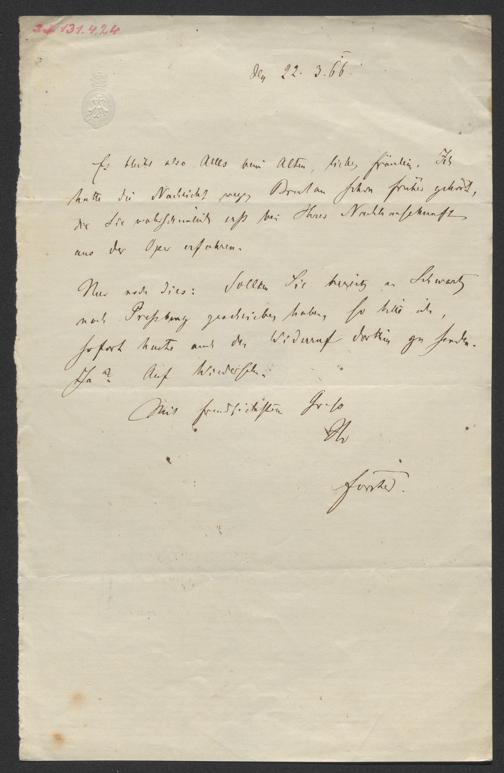 131.424
den 22. 3. 66.
Es bleibt also Alles beim Alten, liebes Fräulein. Ich
hatte die Nachricht wegen schon früher gehört,
die Sie wahrscheinlich erst bei Ihrer
aus der Oper erfuhren.
Nur noch dies: Sollten Sie bereits an Schwarz
nach Pressburg geschrieben haben, so bitte ich,
sofort heute auch den Widerruf dorthin zu senden.
Ja? Auf Wiedersehen.
Mit freundlichstem Gruß
Ihr
Förster.